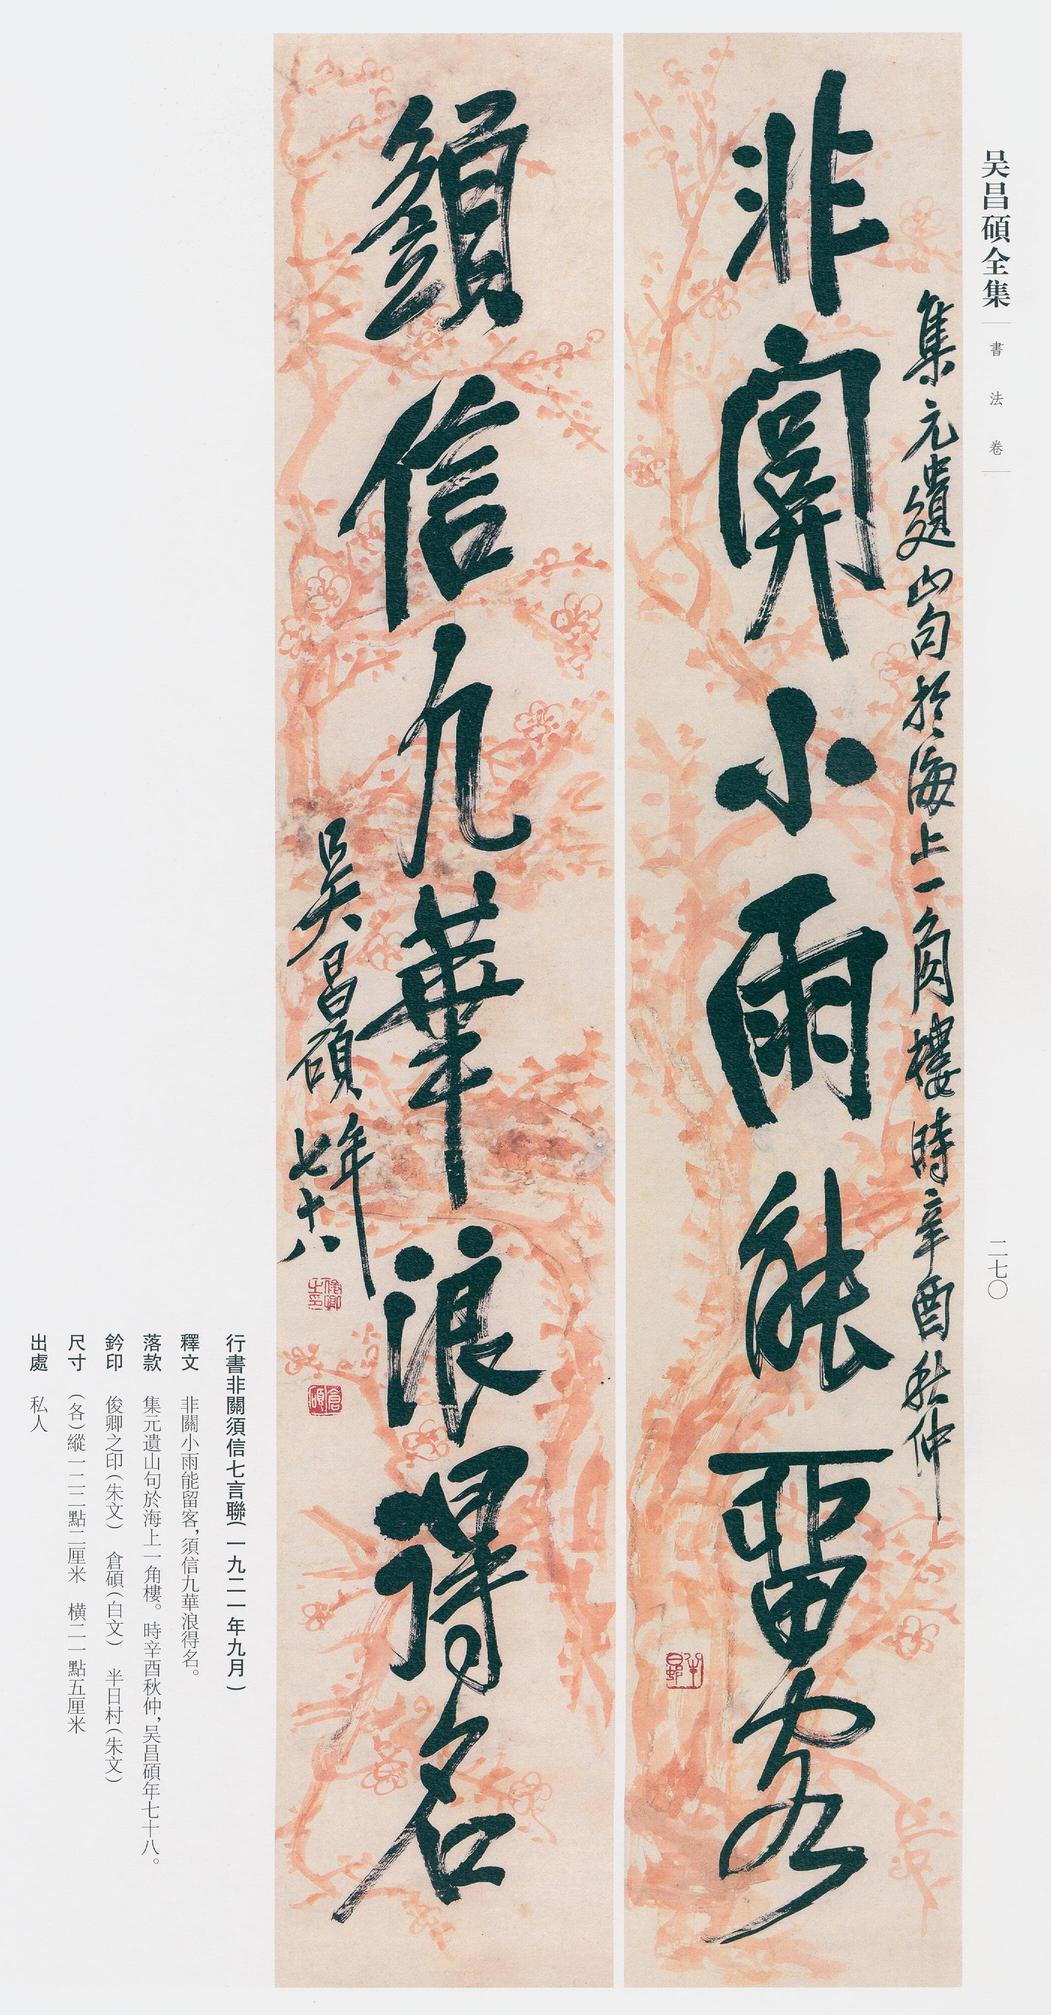 吴昌碩全集
書法卷
二七〇
集元遺山句於海上一角樓時辛酉秋仲
非關小雨能畱客
須信九華浪得名
吴昌碩年
七十八
俊卿之印
倉碩
半日村
行書非關須信七言聯(一九二一年九月)
釋文　非關小雨能留客,須信九華浪得名。
落款　集元遺山句於海上一角樓。時辛酉秋仲,吴昌碩年七十八。
鈐印　俊卿之印(朱文)　倉碩(白文)　半日村(朱文)
尺寸　(各)縱一二二點二厘米　橫二一點五厘米
出處　私人